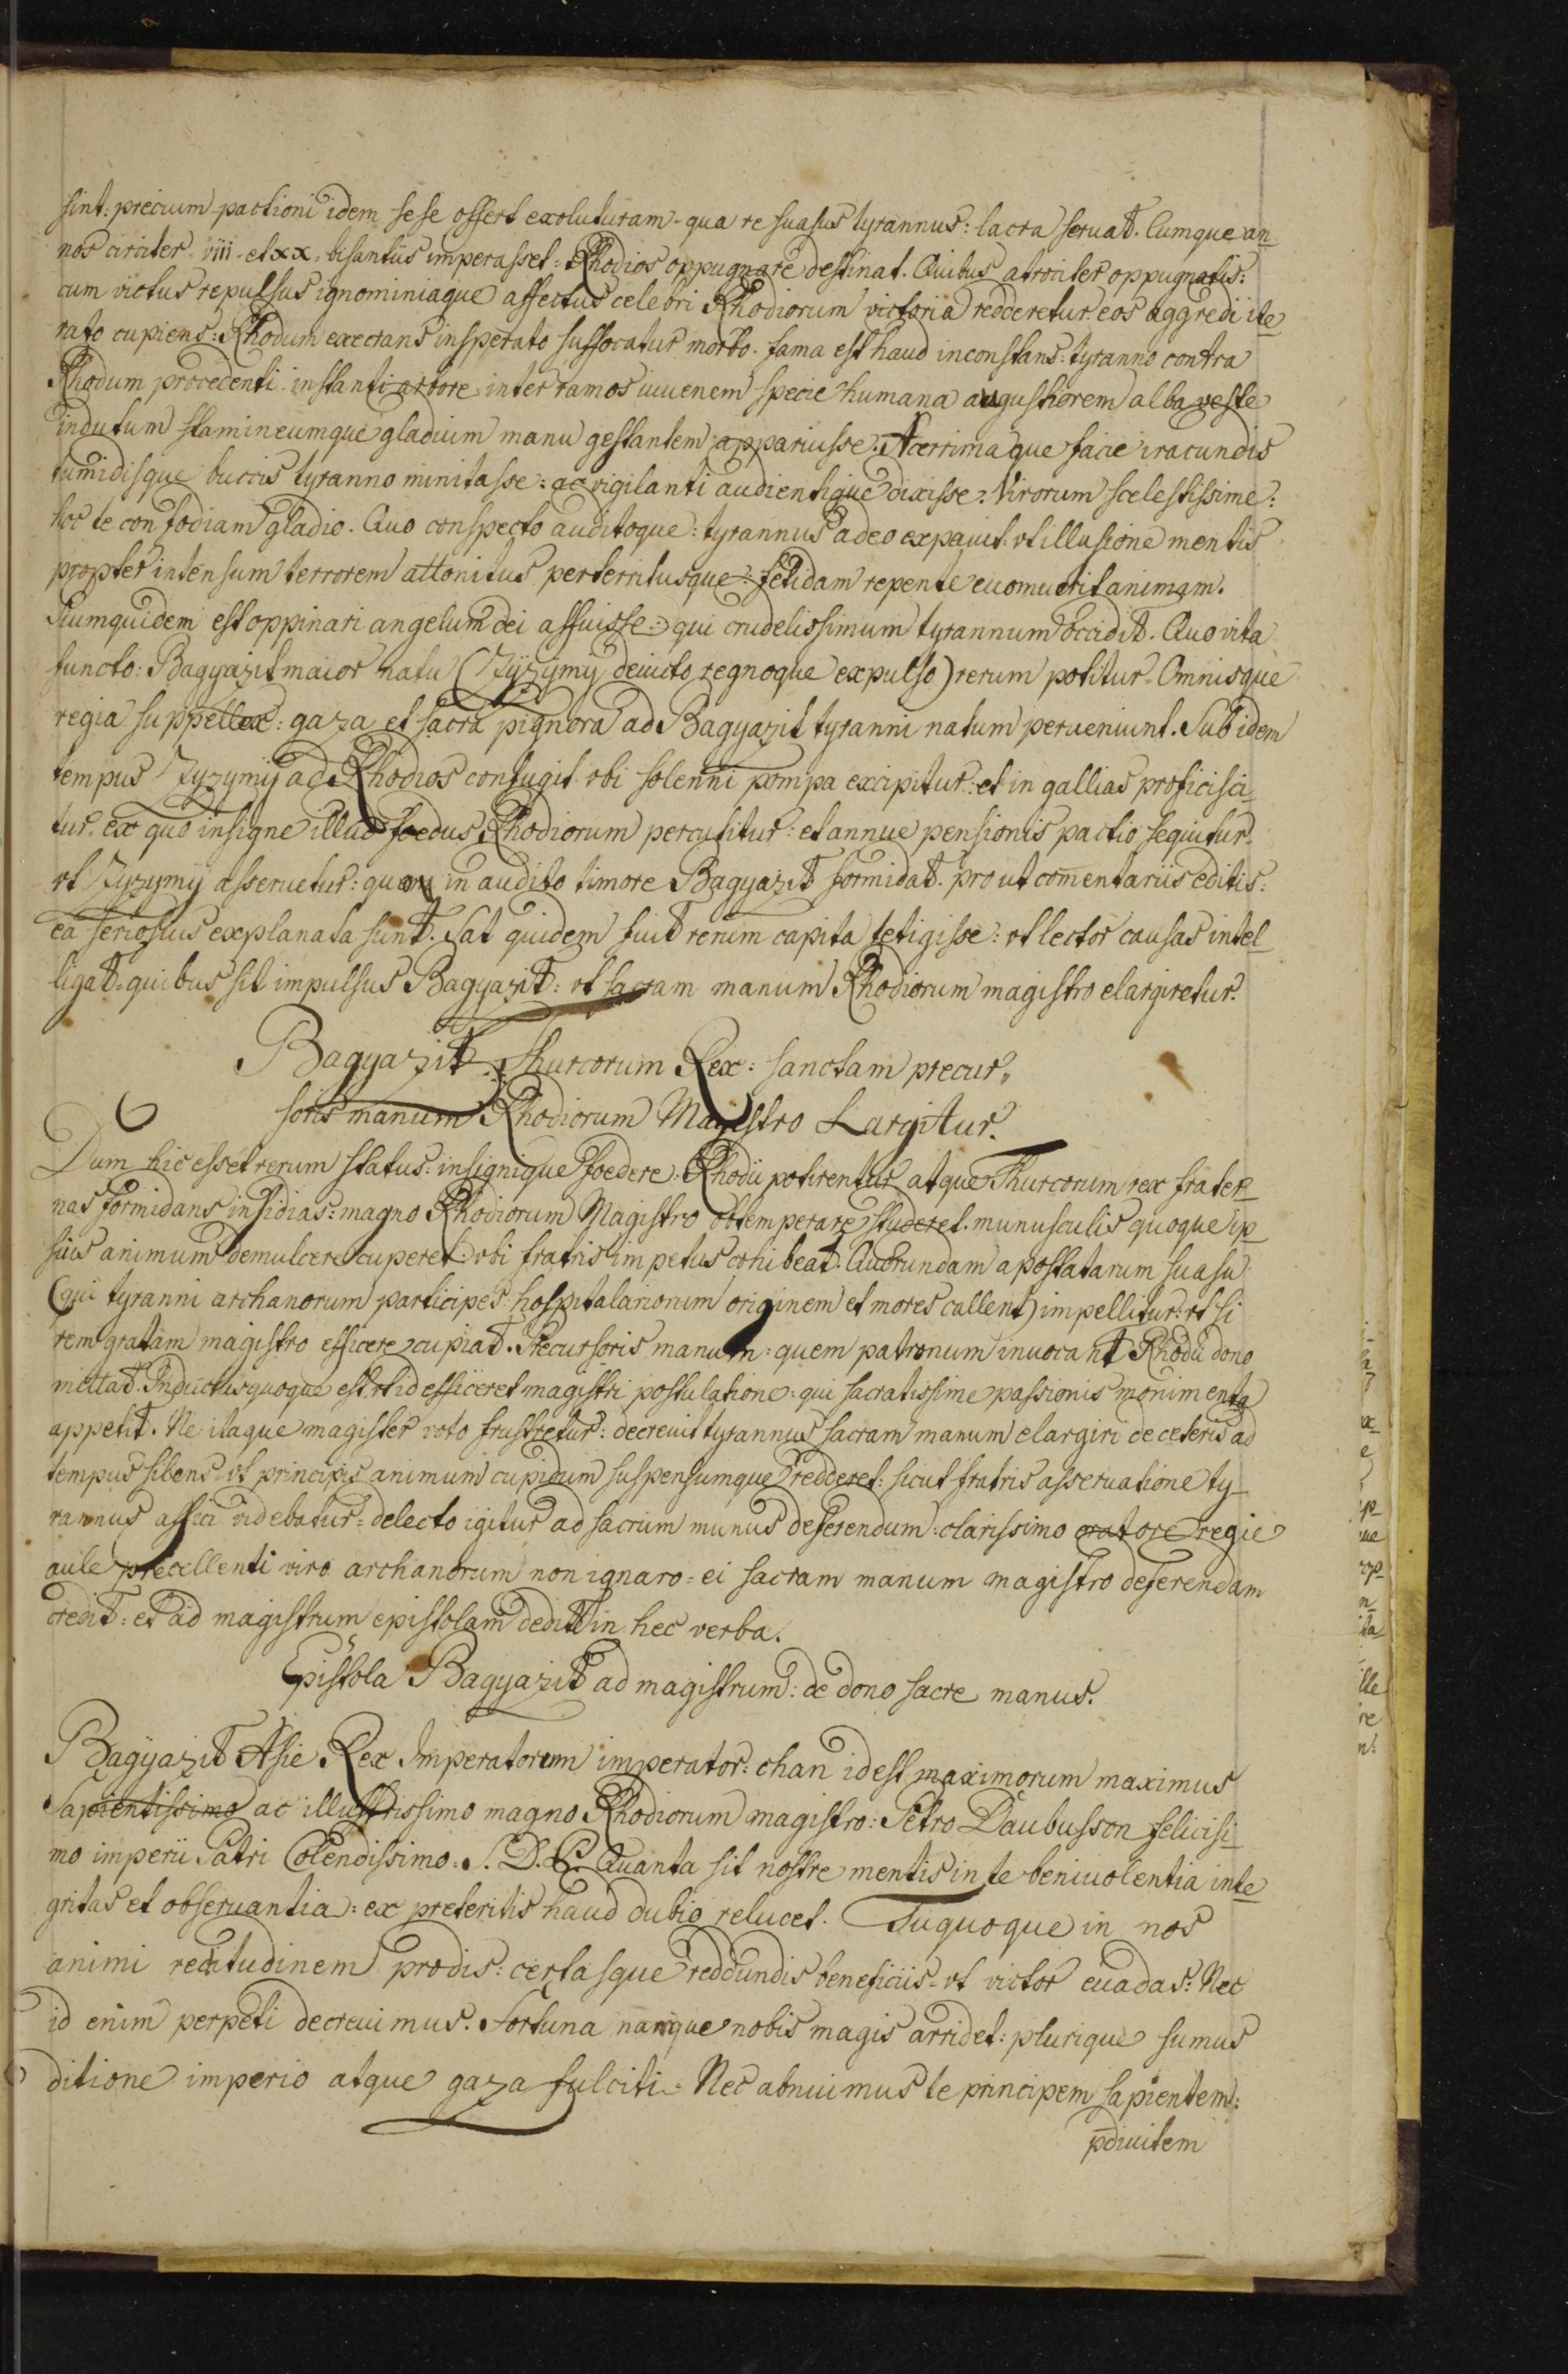 sint: precium pactioni idem sese offert exoluturam - qua re suasus tyrannus: sacra seruat. Cumque an_
nos circiter - viii - et xx - bisantiis imperasset: Rhodios oppugnare destinat. Quibus atrociter oppugnatis:
cum victus repulsus ignominiaque affectus celebri Rhodiorum victoria redderetur. eos aggredi ite_
rato cupiens: Rhodum execrans insperato suffocatur morbo. fama est haud inconstans: tyranno contra
Rhodum procedenti: instanti arbore inter ramos iuuenem specie humana augustiorem alba veste
indutum stamineumque gladium manu gestantem appariusse. Acerrimaque facie iracundis
tumidisque buccis tyranno minitasse: ac vigilanti audientique dixisse: Virorum scelestissime:
hoc te confodiam gladio. Quo conspecto auditoque: tyrannus adeo expauit. vt illusione mentis
propter intensum terrorem attonitus perterritusque: fetidam repente euomuerit animam.
Piumquidem est oppinari angelum dei affuisse: qui crudelissimum tyrannum occidit. Quo vita
functo: Bagyazit maior natu (Zyzymy deuicto regnoque expulso) rerum potitur. Omnisque
regia suppellex: gaza et sacra pignora ad Bagyazit tyranni natum perueniunt. Sub idem
tempus Zyzymy ad Rhodios confugit. vbi solenni pompa excipitur: et in gallias proficisci_
tur. ex quo insigne illud foedus Rhodiorum percutitur: et annue pensionis pactio sequitur.
vt Zyzymy asseruetur: quem inaudito timore Bagyazit formidat. prout comentariis editis:
ea seriosius explanata sunt. Sat quidem fuit rerum capita tetigisse: vt lector causas intel_
ligat. quibus sit impulsus Bagyazit: vt sacram manum Rhodiorum magistro elargiretur.
Bagyazit Thurcorum Rex: sanctam precur,,
soris manum Rhodiorum Magistro Largitur.
Dum hic esset rerum status: insignique foedere: Rhodii potirentur atque Thurcorum rex frater_
nas formidans insidias: magno Rhodiorum Magistro obtemperare studeret. munusculis quoque ip_
sius animum demulcere cuperet: vbi fratris impetus cohibeat. Quorundam apostatarum suasu
(qui tyranni archanorum participes hospitalariorum originem et mores callent) impellitur: vt si
rem gratam magistro efficere cupiat. Precursoris manum: quem patronum inuocant Rhodii dono
mittat. Inductusquoque est vt id efficeret magistri postulatione: qui sacratissime passionis monimenta
appetit. Ne itaque magister voto frustretur: decreuit tyrannus sacram manum elargiri de ceteris ad
tempus silens - vt principis animum cupidum suspensumque redderet: sicut fratris asseruatione ty_
rannus affici videbatur: delecto igitur ad sacrum munus deferendum: clarissimo oratore regie
aule precellenti viro archanorum non ignaro: ei sacram manum magistro deferendam
credit: et ad magistrum epistolam dedit in hec verba.
Epistola Bagyazit ad magistrum: de dono sacre manus.
Bagyazit Asie Rex Imperatorum imperator: chan idest maximorum maximus
Sapientissimo ac illustrissimo magno Rhodiorum magistro: Petro Daubusson felicisi_
mo imperii Patri Colendissimo: S. D. P. Quanta sit nostre mentis in te beniuolentia inte_
gritas et obseruantia: ex preteritis haud dubio relucet. Tuquoque in nos
animi rectitudinem prodis: certasque reddundis beneficiis - vt victor euadas: Nec
id enim perpeti decreuimus. Fortuna namque nobis magis arridet: plurique sumus
ditione imperio atque gaza fulciti - Nec abnuimus te principem sapientem:
pdiuitem